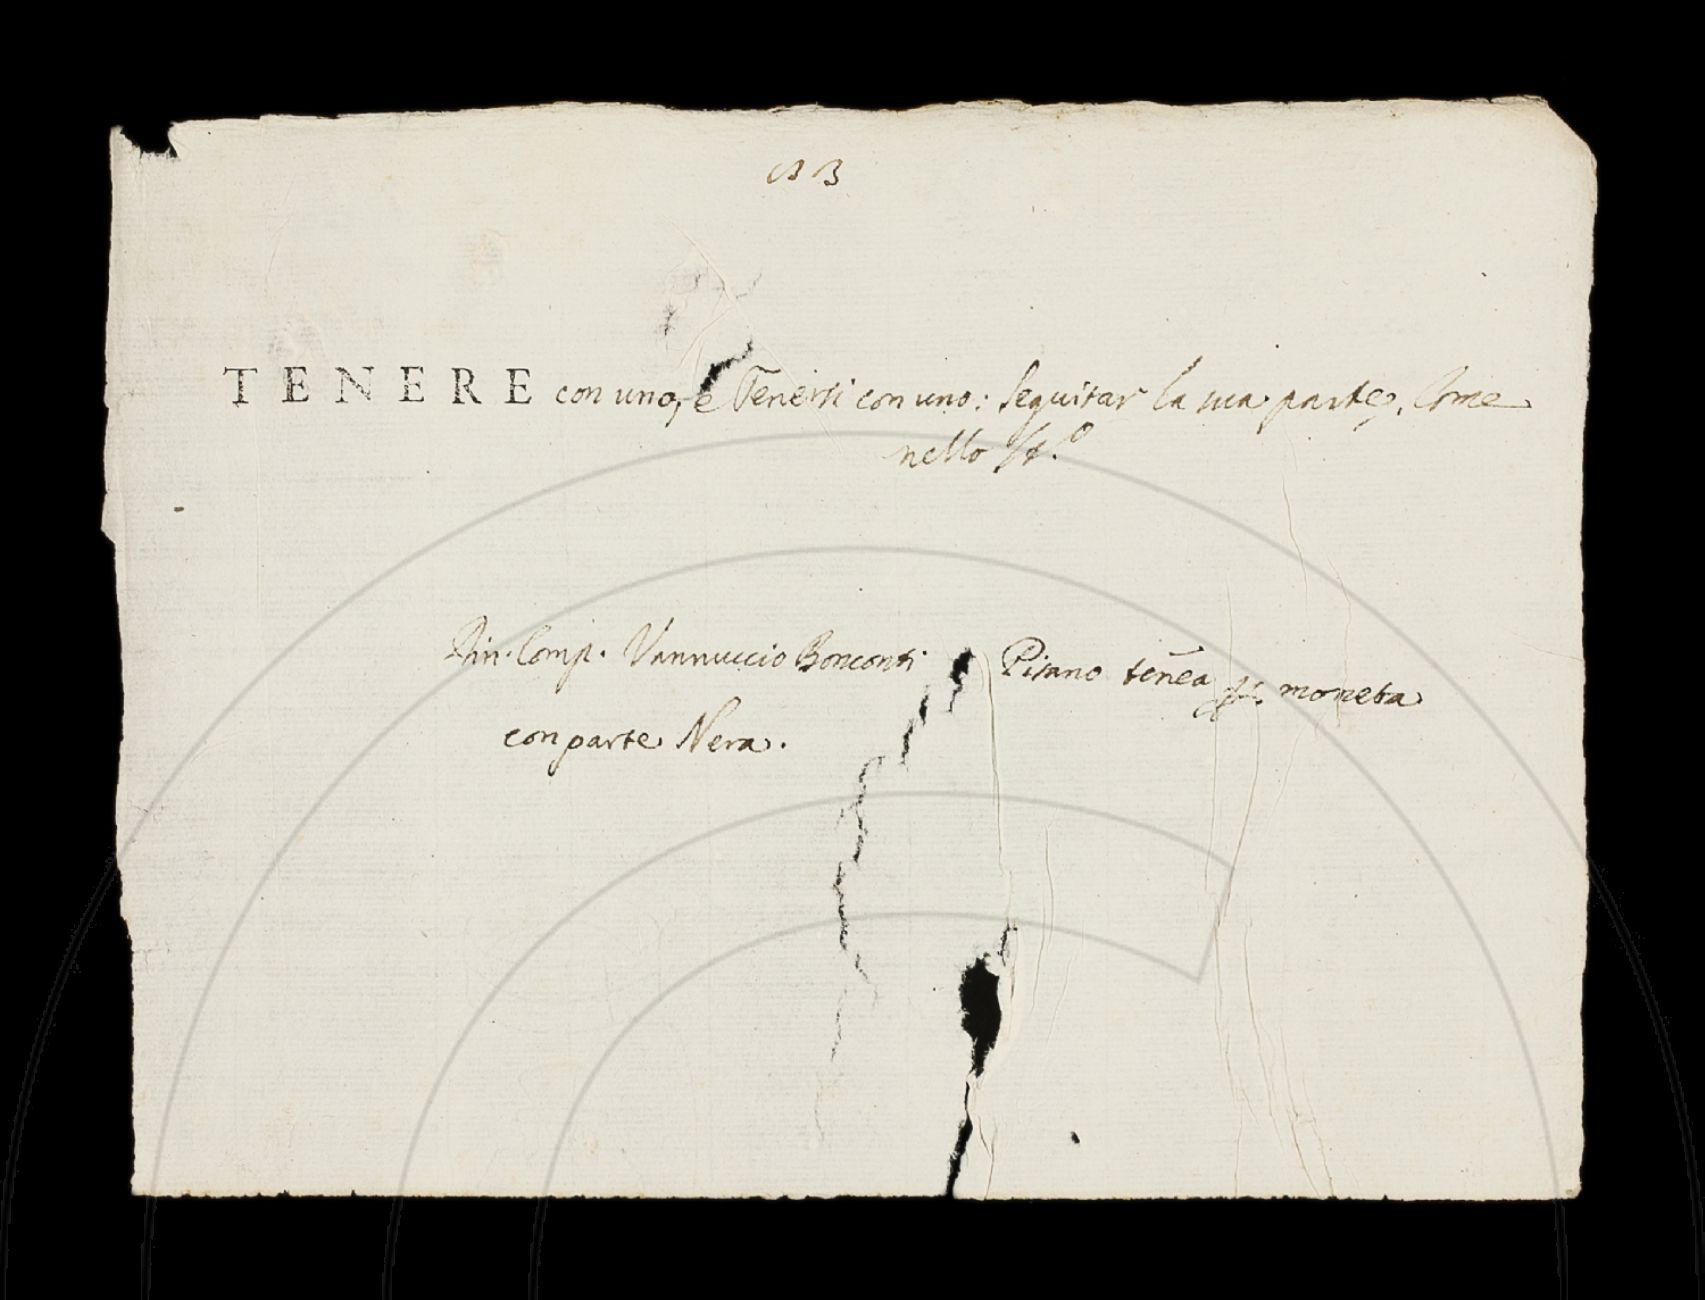 TENERE con uno, e Tenersi con uno: Seguitar la sua parte. Come
nello
Din. Comp. Vannuccio Bonconti Pisano tenea moneta
con parte Nera.